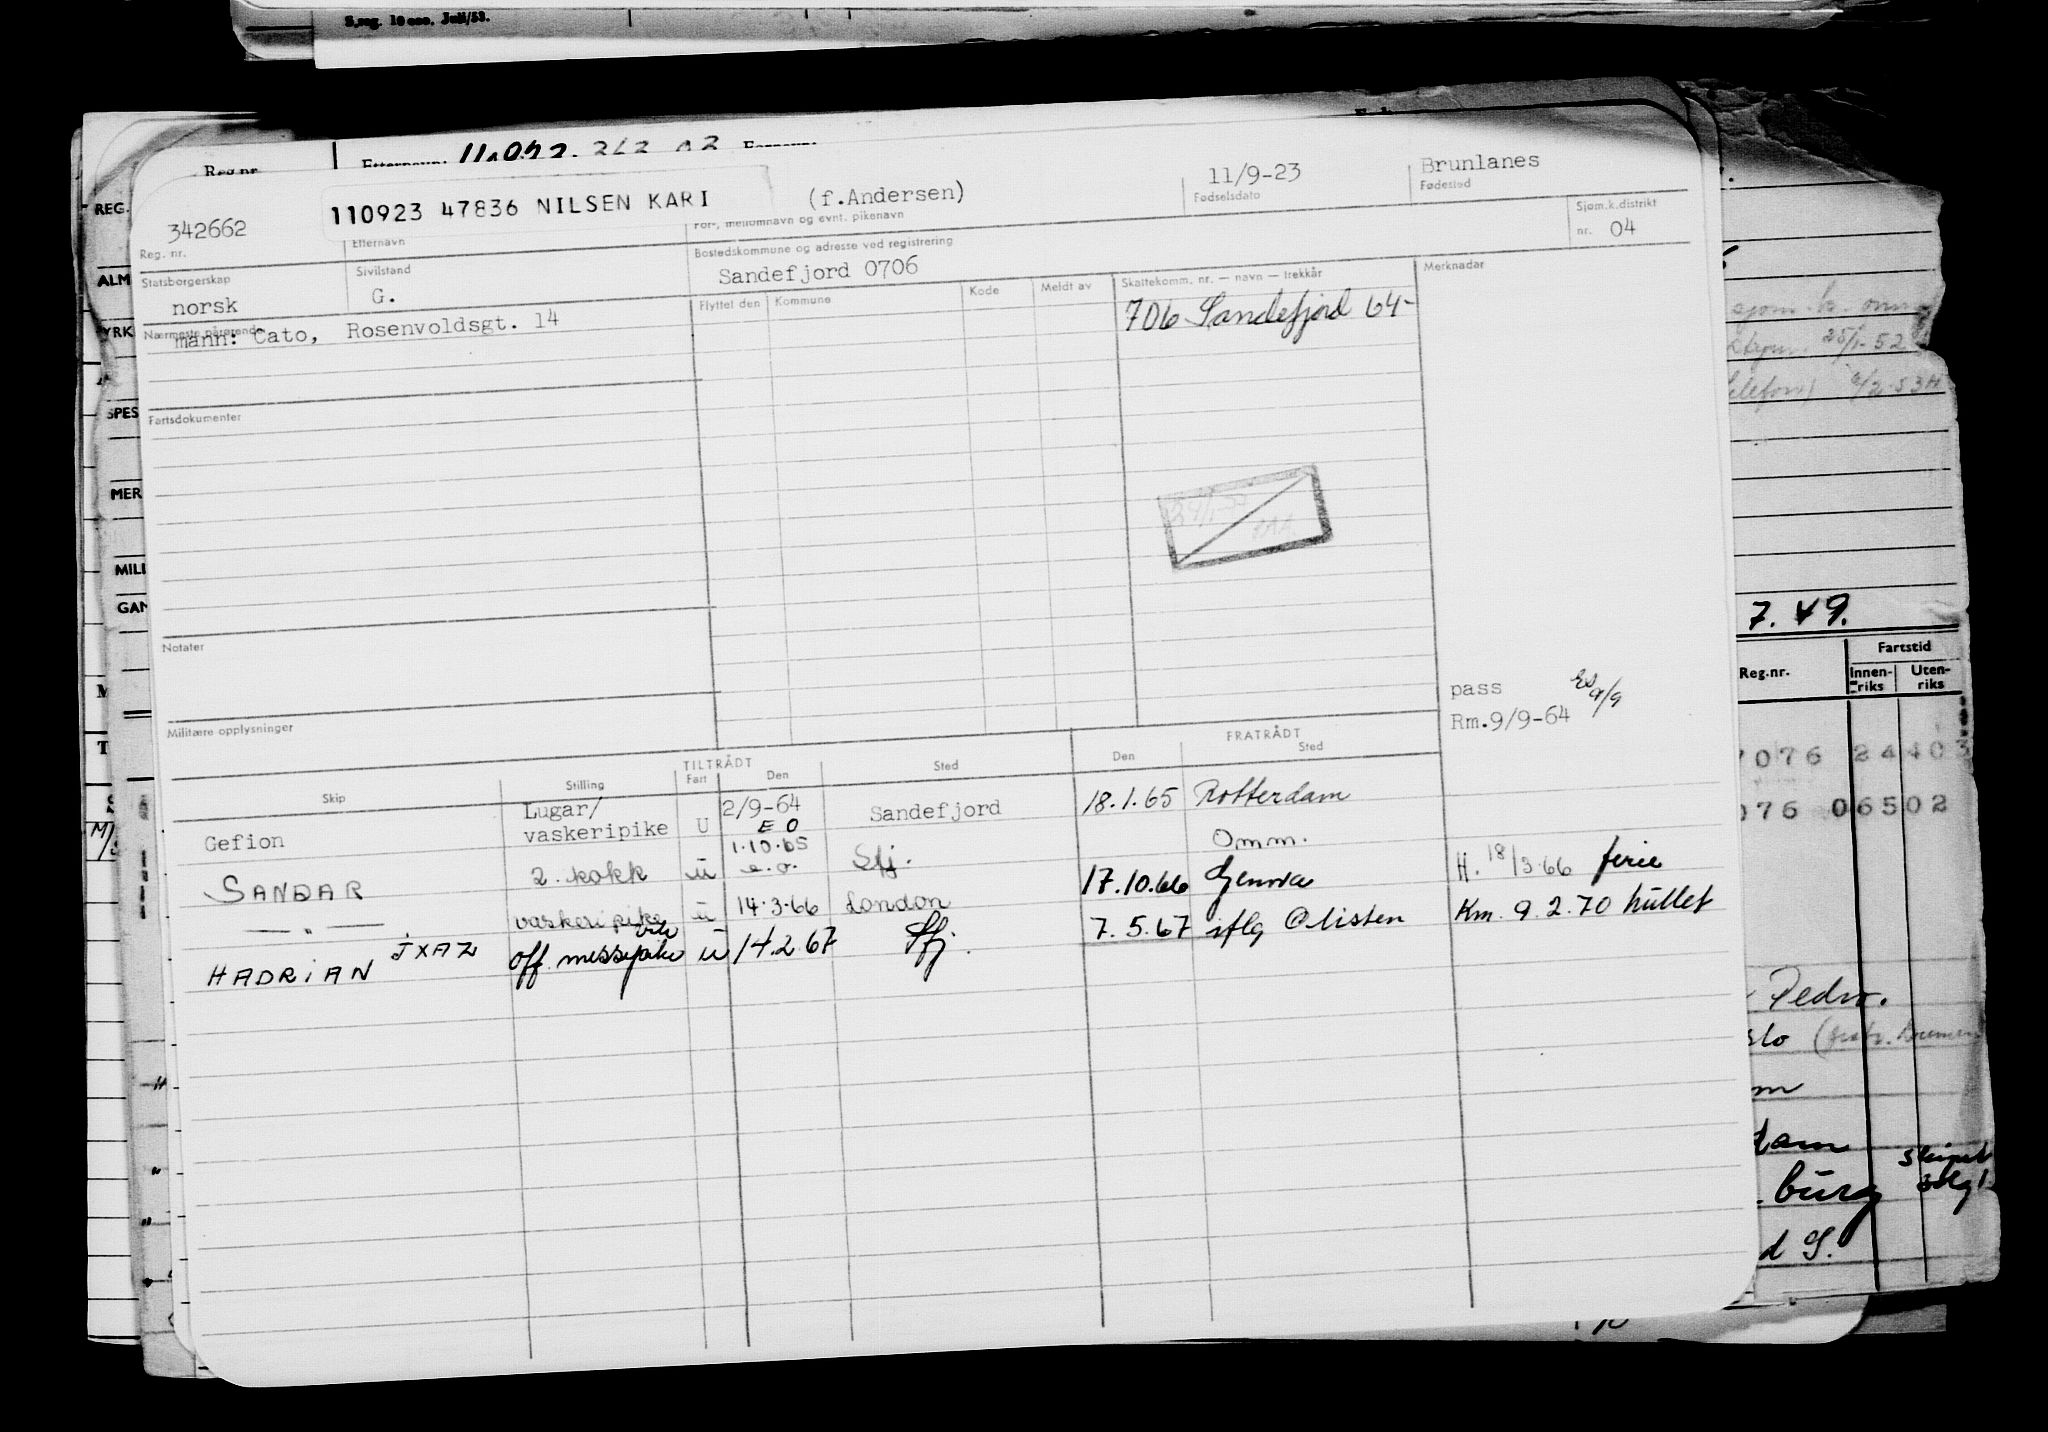 S.reg. 10 000. Juli/53.
Reg.nr.
REG.
ALM
YRK
SPES
MER
MILI
GAN
110923 47836 NILSEN KARI
(f.Andersen)
11/9-23
Fødselsdato
Brunlanes
Fødested
342662
Reg. nr.
Etternavn
For-, mellomnavn og evnt. pikenavn
Sjøm.k.distrikt
nr. 04
Statsborgerskap
norsk
Sivilstand
G.
Bostedskommune og adresse ved registrering
Sandefjord 0706
Nærmeste pårørende
mann: Cato, Rosenvoldsgt. 14
Flyttet den
Kommune
Kode
Meldt av
Skattekomm. nr. — navn — trekkår
706 Sandefjord 64-
Merknader
Fartsdokumenter
Notater
Militære opplysninger
pass
Rm.9/9-64
TILTRÅDT
FRATRÅDT
Skip
Stilling
Fart
Den
Sted
Den
Sted
Gefion
Lugar/
vaskeripike
U
2/9-64
E O
Sandefjord
18.1.65
Rotterdam
SANDAR
2. kokk
u
1.10.65
e.o.
Sfj.
Omm.
H. 18/3.66 ferie
— " —
vaskeripike
u
14.3.66
London
17.10.66
Genova
Km. 9.2.70 hullet
HADRIAN JXAZ
off. messepike
u
14.2.67
Sfj.
7.5.67
iflg @listen
25/1-52
7.49.
Reg.nr.
Fartstid
Innen-
riks
Uten-
riks
7076 24403
076 06502
Pedro.
dam
burg
d S.